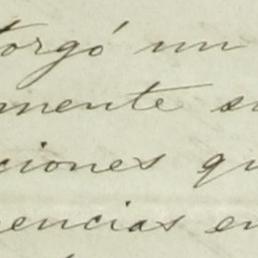 torgó un
mente su
ciones qu
encias en